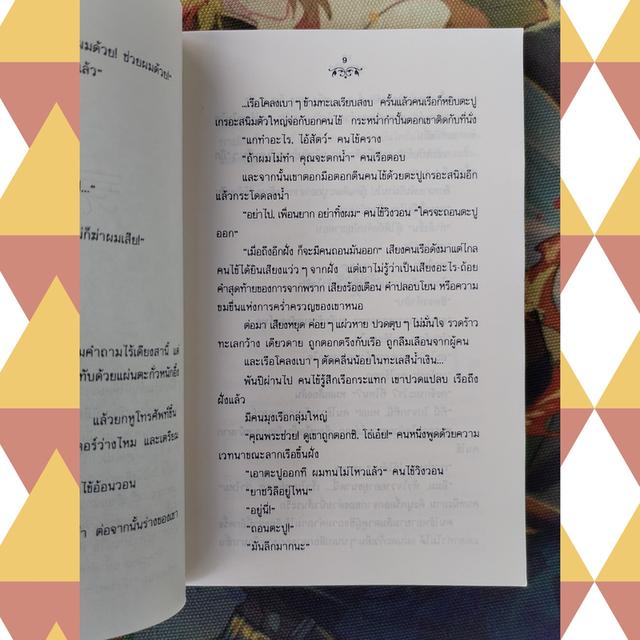 มด้วย! ช่วยผมด้วย!"
แล้ว"
!..."
ม่ก็ฆ่าผมเสีย!"
มคำถามไร้เดียงสานี้ แต่
ทับด้วยแผ่นตะกั่วหนักอึ้ง
แล้วยกหูโทรศัพท์ขึ้น
ตอร์ว่างไหม และเตรียม
ใช้อ้อนวอน
ต่อจากนั้นร่างของเขา
9
...เรือโคลงเบา ๆ ข้ามทะเลเรียบสงบ ครั้นแล้วคนเรือก็หยิบตะปู
เกรอะสนิมตัวใหญ่จ่อกับอกคนไข้ กระหน่ำกำปั้นตอกเขาติดกับที่นั่ง
"แกทำอะไร, ไอ้สัตว์" คนไข้คราง
"ถ้าผมไม่ทำ คุณจะตกน้ำ" คนเรือตอบ
และจากนั้นเขาตอกมือตอกตีนคนไข้ด้วยตะปูเกรอะสนิมอีก
แล้วกระโดดลงน้ำ
"อย่าไป, เพื่อนยาก อย่าทิ้งผม" คนไข้วิงวอน "ใครจะถอนตะปู
ออก"
"เมื่อถึงอีกฝั่ง ก็จะมีคนถอนมันออก" เสียงคนเรือดังมาแต่ไกล
คนไข้ได้ยินเสียงแว่ว ๆ จากฝั่ง แต่เขาไม่รู้ว่าเป็นเสียงอะไร-ถ้อย
คำสุดท้ายของการจากพราก เสียงร้องเตือน คำปลอบโยน หรือความ
ขมขื่นแห่งการคร่ำครวญของเขาหนอ
ต่อมา เสียงหยุด ค่อย ๆ แผ่วหาย ปวดตุบ ๆ ไม่มั่นใจ รวดร้าว
ทะเลกว้าง เดียวดาย ถูกตอกตรึงกับเรือ ถูกลืมเลือนจากผู้คน
และเรือโคลงเบา ๆ ตัดคลื่นน้อยในทะเลสีน้ำเงิน...
พันปีผ่านไป คนไข้รู้สึกเรือกระแทก เขาปวดแปลบ เรือถึง
ฝั่งแล้ว
มีคนมุงเรือกลุ่มใหญ่
"คุณพระช่วย! ดูเขาถูกตอกซิ. โธ่เอ๋ย!" คนหนึ่งพูดด้วยความ
เวทนาขณะลากเรือขึ้นฝั่ง
"เอาตะปูออกที ผมทนไม่ไหวแล้ว" คนไข้วิงวอน
"ยาซวิลีอยู่ไหน"
"อยู่นี่!"
"ถอนตะปู!"
"มันลึกมากนะ"